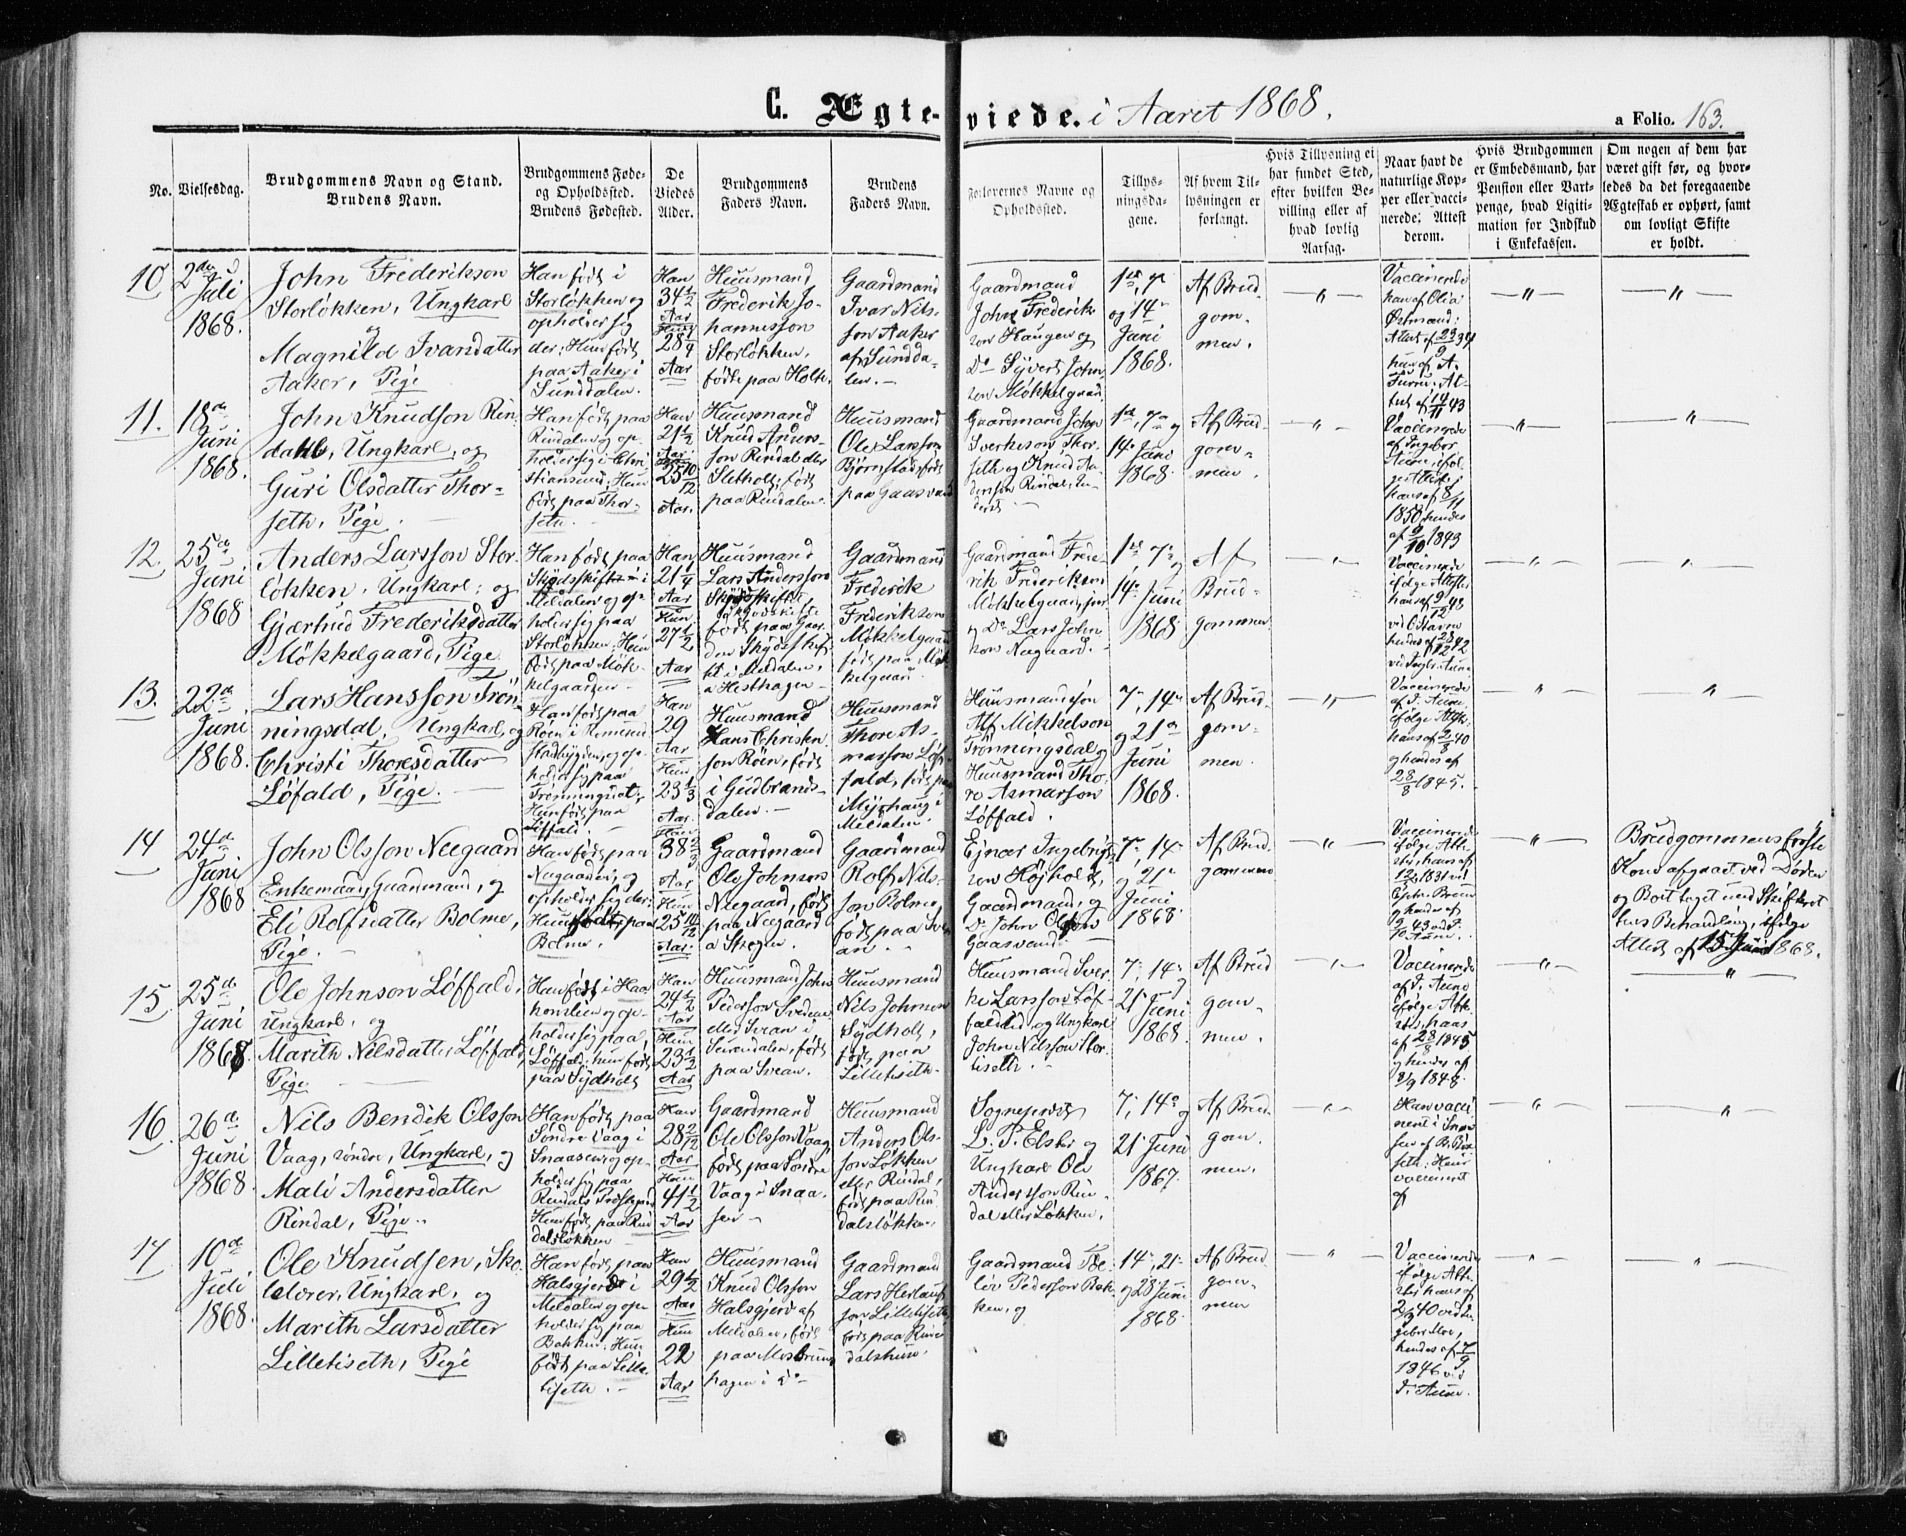 C. Ægte-viede. i Aaret 1868.
a Folio. 163.
No.
Vielsesdag.
Brudgommens Navn og Stand.
Brudens Navn.
Brudgommens Føde-
og Opholdssted.
Brudens Fødested.
De
Viedes
Alder.
Brudgommens
Faders Navn.
Brudens
Faders Navn.
Forlovernes Navne og
Opholdssted.
Tillys-
ningsda-
gene.
Af hvem Til-
lysningen er
forlangt.
Hvis Tillysning ei
har fundet Sted,
efter hvilken Be-
villing eller af
hvad lovlig
Aarsag.
Naar havt de
naturlige Kop-
per eller vacci-
nerede; Attest
derom.
Hvis Brudgommen
er Embedsmand, har
Pension eller Vart-
penge, hvad Ligiti-
mation for Indskud
i Enkekassen.
Om nogen af dem har
været gift før, og hvor-
ledes da det foregaaende
Ægteskab er ophørt, samt
om lovligt Skifte
er holdt.
10
2de
Juli
1868.
John Frederikson
Storløkken, Ungkarl
og
Magnild Ivarsdatter
Aaker, Pige
Han født i
Storløkken og
opholder sig
der; Hun født
paa Aaker i
Sunddalen.
Han
34 1/2
Aar
Hun
28 1/4
Aar
Huusmand
Frederik Jo-
hannesson
Storløkken,
født paa Holte
Gaardmand
Ivar Nils-
son Aaker
af Sundda-
len. —
Gaardmand
John Frederik-
son Haugen og
Do Sivert John-
sen Møkkelgaard
1ste, 7de
og 14de
Juni
1868.
Af Brud-
gom-
men.
— " —
Vaccinerede
han af Olia
Østmand;
Attest af
hun af A.
Furru. At-
test af 14/11 43
— " —
— " —
11.
18de
Juni
1868.
John Knudson Rin-
dahl, Ungkarl, og
Guri Olsdatter Thor-
seth, Pige. —
Han født paa
Rindalen og op-
holder sig i Chri-
stiansund; Hun
født paa Thor-
seth. —
Han
21 1/2
Aar
Hun
25 10/12
Aar.
Huusmand
Knud Anders-
son Rindal eller
Sletholt; født
paa Rindalen.
Huusmand
Ole Larsson
Bjørnstad, født
paa Gaasvand
Gaardmand John
Sverkeson Thor-
seth og Knud An-
dersson Rindal
1ste, 7de og
14de Juni
1868.
Af Brud-
gom-
men.
— " —
Vaccinerede
af Ingebor
Aune, iføl-
ge Attest:
hans af 8/11
1850 hendes
af 9/10 1843
— " —
"
12.
25de
Juni
1868
Anders Larsson Stor-
løkken, Ungkarl; og
Gjærtrud Frederiksdatter
Møkkelgaard, Pige.
Han født paa
Skjødskift i
Meldalen og op-
holder sig paa
Storløkken; Hun
født paa Møk-
kelgaarden —
Han
21 1/4
Aar
Hun
27 1/2
Aar
Huusmand
Lars Andersson
Skjødskift
født paa Gaar-
den Skjødskif-
tet i Meldalen,
a Hesthagen —
Gaardmand
Frederik
Frederikson
Møkkelgaard
født paa Møk-
kelgaard.
Gaardmand Frede-
rik Frederiksen
Møkkelgaard, jun.
og Do Lars John-
son Neegaard. —
1ste, 7de og
14de Juni
1868.
Af
Brud-
gommen
"
Vaccinerede
ifølge Attester
hans af 9/12 48
ved C Stavne
hendes af
ved Ingb. Aune
— " —
"
13.
22de
Juni
1868.
Lars Hansson Trøn-
ningsdal, Ungkarl, og
Christi Thoresdatter
Løfald, Pige. —
Han født paa
Røen i
Stadsbygden, og op-
holder sig paa
Trønningsdal;
Hun født paa
Løffald. —
Han
29
Aar
Hun
23 1/3
Aar
Huusmand
Hans Christen-
son Røen, født
i Gudbrands-
dalen. —
Huusmand
Thore As-
marsson Løf-
fald, født paa
Myrhaug i
Meldalen.
Huusmandssøn
Alf Mikkelson
Trønningsdal og
Huusmand Tho-
re Asmarson
Løffald.
7de, 14de
og 21de
Juni
1868.
Af Brud-
gom-
men.
— " —
Vaccinerede
af I. Aune
ifølge Attest
hans af 2/8 40
og hendes af
28/8 1845.
— " —
"
14
24de
Juni
1868
John Olsson Neegaard
Enkemand, Gaardmand, og
Eli Rolfsdatter Bolme,
Pige. —
Han født paa
Neegaarden, og
opholder sig der;
Hun født paa
Bolme.
Han
38 2/3
Aar
Hun
25 10/12
Aar.
Gaardmand
Ole Johnson
Neegaard, født
paa Neegaard
Gaardmand
Rolf Nils-
son Bolme,
født paa Sve-
an. —
Ejnar Ingebrigt-
sen Højholt,
Gaardmand, og
Do John Olsson
Gaasvand.
7de, 14de
og 21de
Juni
1868.
Af Brud-
gommen
— " —
Vaccinerede
ifølge Atte-
ster, hans af
og hendes af
— " —
Brudgommens første
Kone afgaaet ved Døden
og Boet taget under Skifteret-
tens Behandling, ifølge
Attest af 15 Juni 1868.
15.
25de
Juni
1868
Ole Johnson Løffald,
Ungkarl, og
Marith Nilsdatter Løffald,
Pige —
Han født i
og op-
holder sig paa
Løffald; hun født
paa Sydholt
Han
24 1/2
Aar
Hun
23 1/2
Aar
Huusmand John
Pederson Svean
eller Svean i
Surendalen, født
paa Svean.
Huusmand
Nils Johnson
Sydholt,
født paa
Lilletiseth.
Huusmand Sver-
ke Larsson Løf-
faldlid og Ungkarl
John Nilsson Stor-
tiseth.
7de, 14de og
21de Juni
1868.
Af Brud-
gom-
men.
— " —
Vaccinerede
af I. Aune
ifølge Atte-
ster, hans
af 28/8 1845
og hendes af
1848.
— " —
"
16.
26de
Juni
1868.
Nils Bendik Olsson
Vaag, søndre, Ungkarl, og
Mali Andersdatter
Rindal, Pige. —
Han født paa
Søndre Vaag i
Snaasen og op-
holder sig paa
Rindals Præstegaard
Hun født paa Rin-
dalsløkken
Han
28 2/12
Aar
Hun
41 1/2
Aar
Gaardmand
Ole Olsson Vaag
født paa Søndre
Vaag i Snaa-
sen —
Huusmand
Anders Ols-
son Løkken
eller Rindal,
født paa Rin-
dalsløkken.
Sognepræst
L. P. Elster og
Ungkarl Ole
Andersson Rin-
dal eller Løkken.
7de, 14de og
21de Juni
1867.
Af Brud-
gom-
men.
— " —
Han vacci-
neret i Snaa-
sen af
Hun
vaccineret
af
— " —
"
17
10de
Juli
1868.
Ole Knudsen, Sko-
lelærer, Ungkarl, og
Marith Larsdatter
Lilletiseth, Pige
Han født paa
Halsgjerdt i
Meldalen og op-
holder sig paa
Bakken; Hun
født paa Lille-
tiseth. —
Han
29 1/2
Aar
Hun
22
Aar
Huusmand
Knud Olsson
Halsgjerd af
Meldalen, født
paa
hagen i Do
Gaardmand
Lars Herlauf-
son Lilletiseth
født paa Rin-
dalshuus.
Gaardmand
Pederson Bak-
ken, og
14de, 21de
og 28de Juni
1868.
Af Brud-
gom-
men
"
Vaccinerede
ifølge Atte-
ster hans af
2/9 40 ved In-
gebr Moe,
hendes af 7/9
1846 ved
I. Aune.
"
"